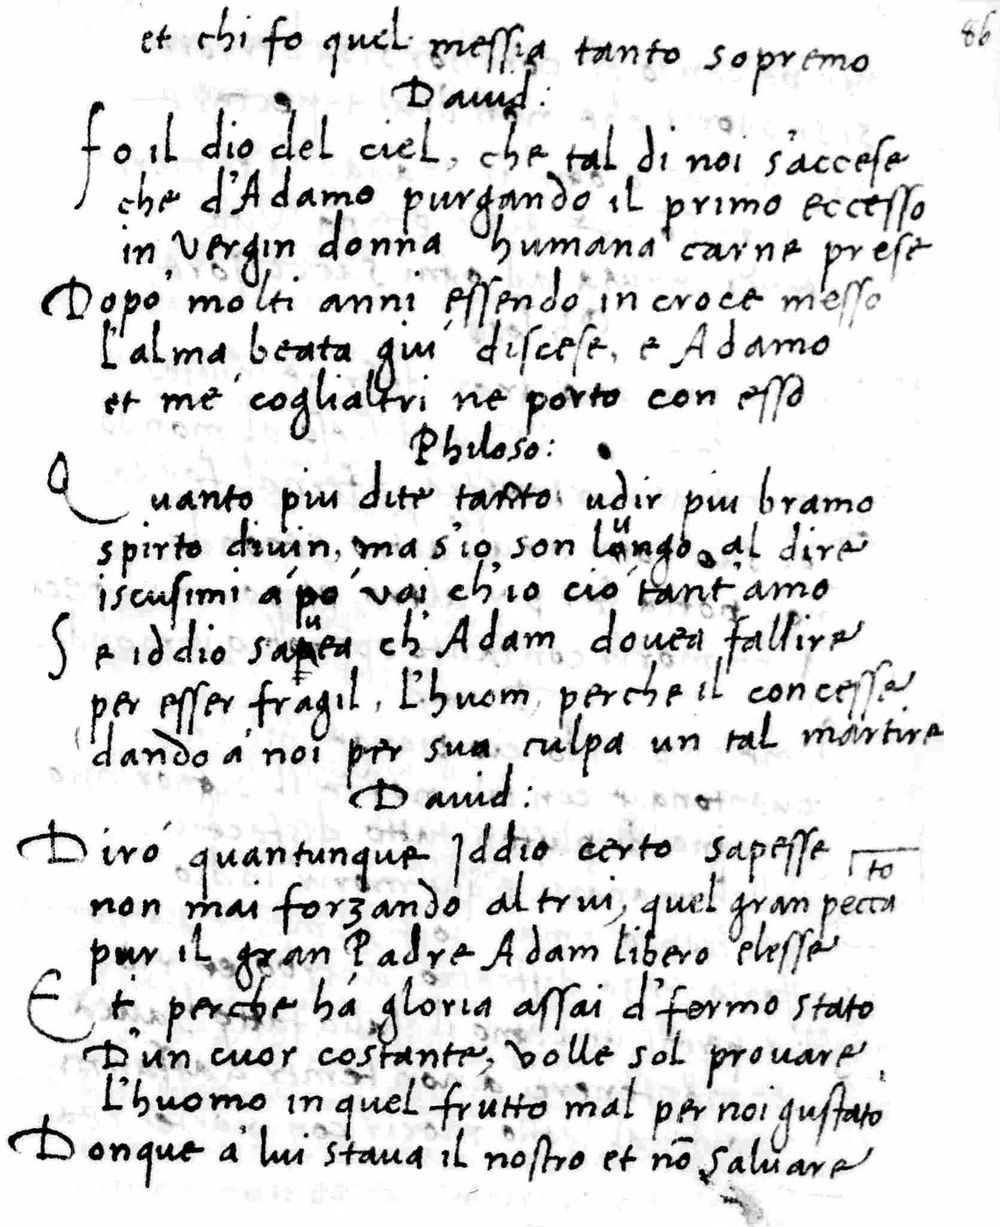 86
et chi fo quel messia tanto sopremo
Dauid:
fo il dio del ciel, che tal di noi s'accese
che d'Adamo purgando il primo eccesso
in vergin donna humana carne prese
Dopo molti anni essendo in croce messo
l'alma beata giu discese, e Adamo
et me coglialtri ne porto con esso
Philoso:
Quanto piu dite tanto udir piu bramo
spirto diuin, ma s'io son lungo al dire
iscusimi a po voi ch'io cio tant'amo
Se iddio sapea ch'Adam douea fallire
per esser fragil, l'huom, perche il concesse
dando a noi per sua culpa un tal martire
Dauid:
Diró quantunque Iddio certo sapesse
non mai forzando altrui, quel gran pecca
to
pur il gran Padre Adam libero elesse
Et perche há gloria assai d'fermo stato
D'un cuor costante, volle sol prouare
L'huomo in quel frutto mal per noi gustato
Donque a lui staua il nostro et nō saluare